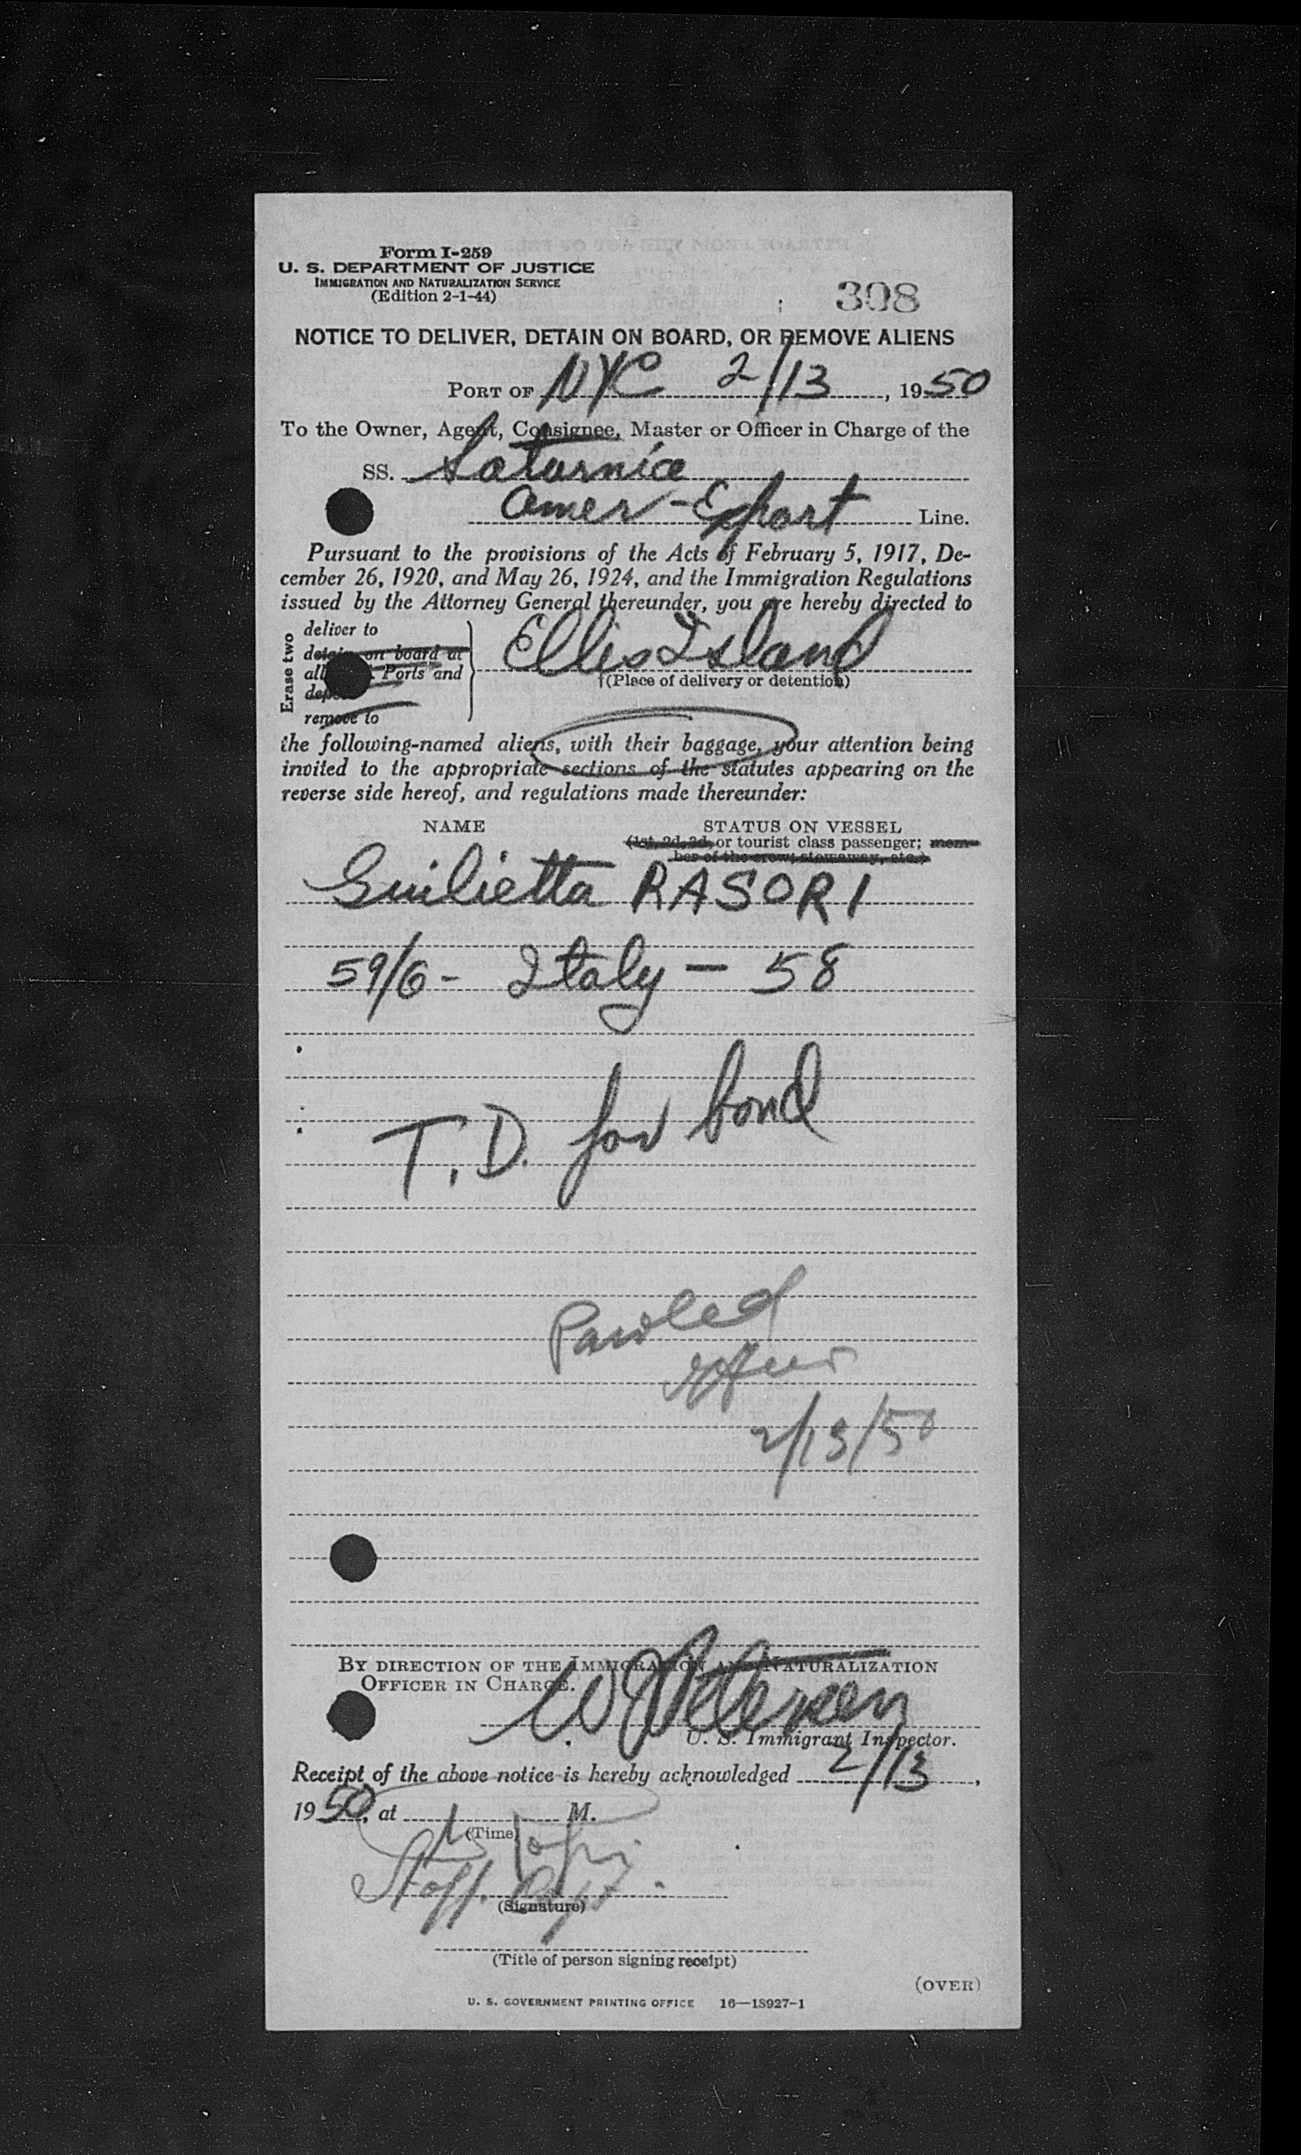 Form I-259
U. S. DEPARTMENT OF JUSTICE
IMMIGRATION AND NATURALIZATION SERVICE
(Edition 2-1-44)
308
NOTICE TO DELIVER, DETAIN ON BOARD, OR REMOVE ALIENS
PORT OF NYC 2/13, 1950
To the Owner, Agent, Consignee, Master or Officer in Charge of the
SS. Saturnia
Amer-Export Line.
Pursuant to the provisions of the Acts of February 5, 1917, De-
cember 26, 1920, and May 26, 1924, and the Immigration Regulations
issued by the Attorney General thereunder, you are hereby directed to
Erase two
deliver to
detain on board at
all Ports and
remove to
Ellis Island
†(Place of delivery or detention)
the following-named aliens, with their baggage, your attention being
invited to the appropriate sections of the statutes appearing on the
reverse side hereof, and regulations made thereunder:
NAME STATUS ON VESSEL
(1st, 2d, 3d, or tourist class passenger; mem-
ber of the crew; stowaway, etc.)
Guilietta RASORI
59/6 - Italy - 58
T.D. for bond
Paroled
2/13/50
BY DIRECTION OF THE IMMIGRATION AND NATURALIZATION
OFFICER IN CHARGE.
W Petersen
U. S. Immigrant Inspector.
Receipt of the above notice is hereby acknowledged 2/13,
1950, at M.
(Time)
Staff. Capt.
(Signature)
(Title of person signing receipt)
(OVER)
U. S. GOVERNMENT PRINTING OFFICE 16—18927-1